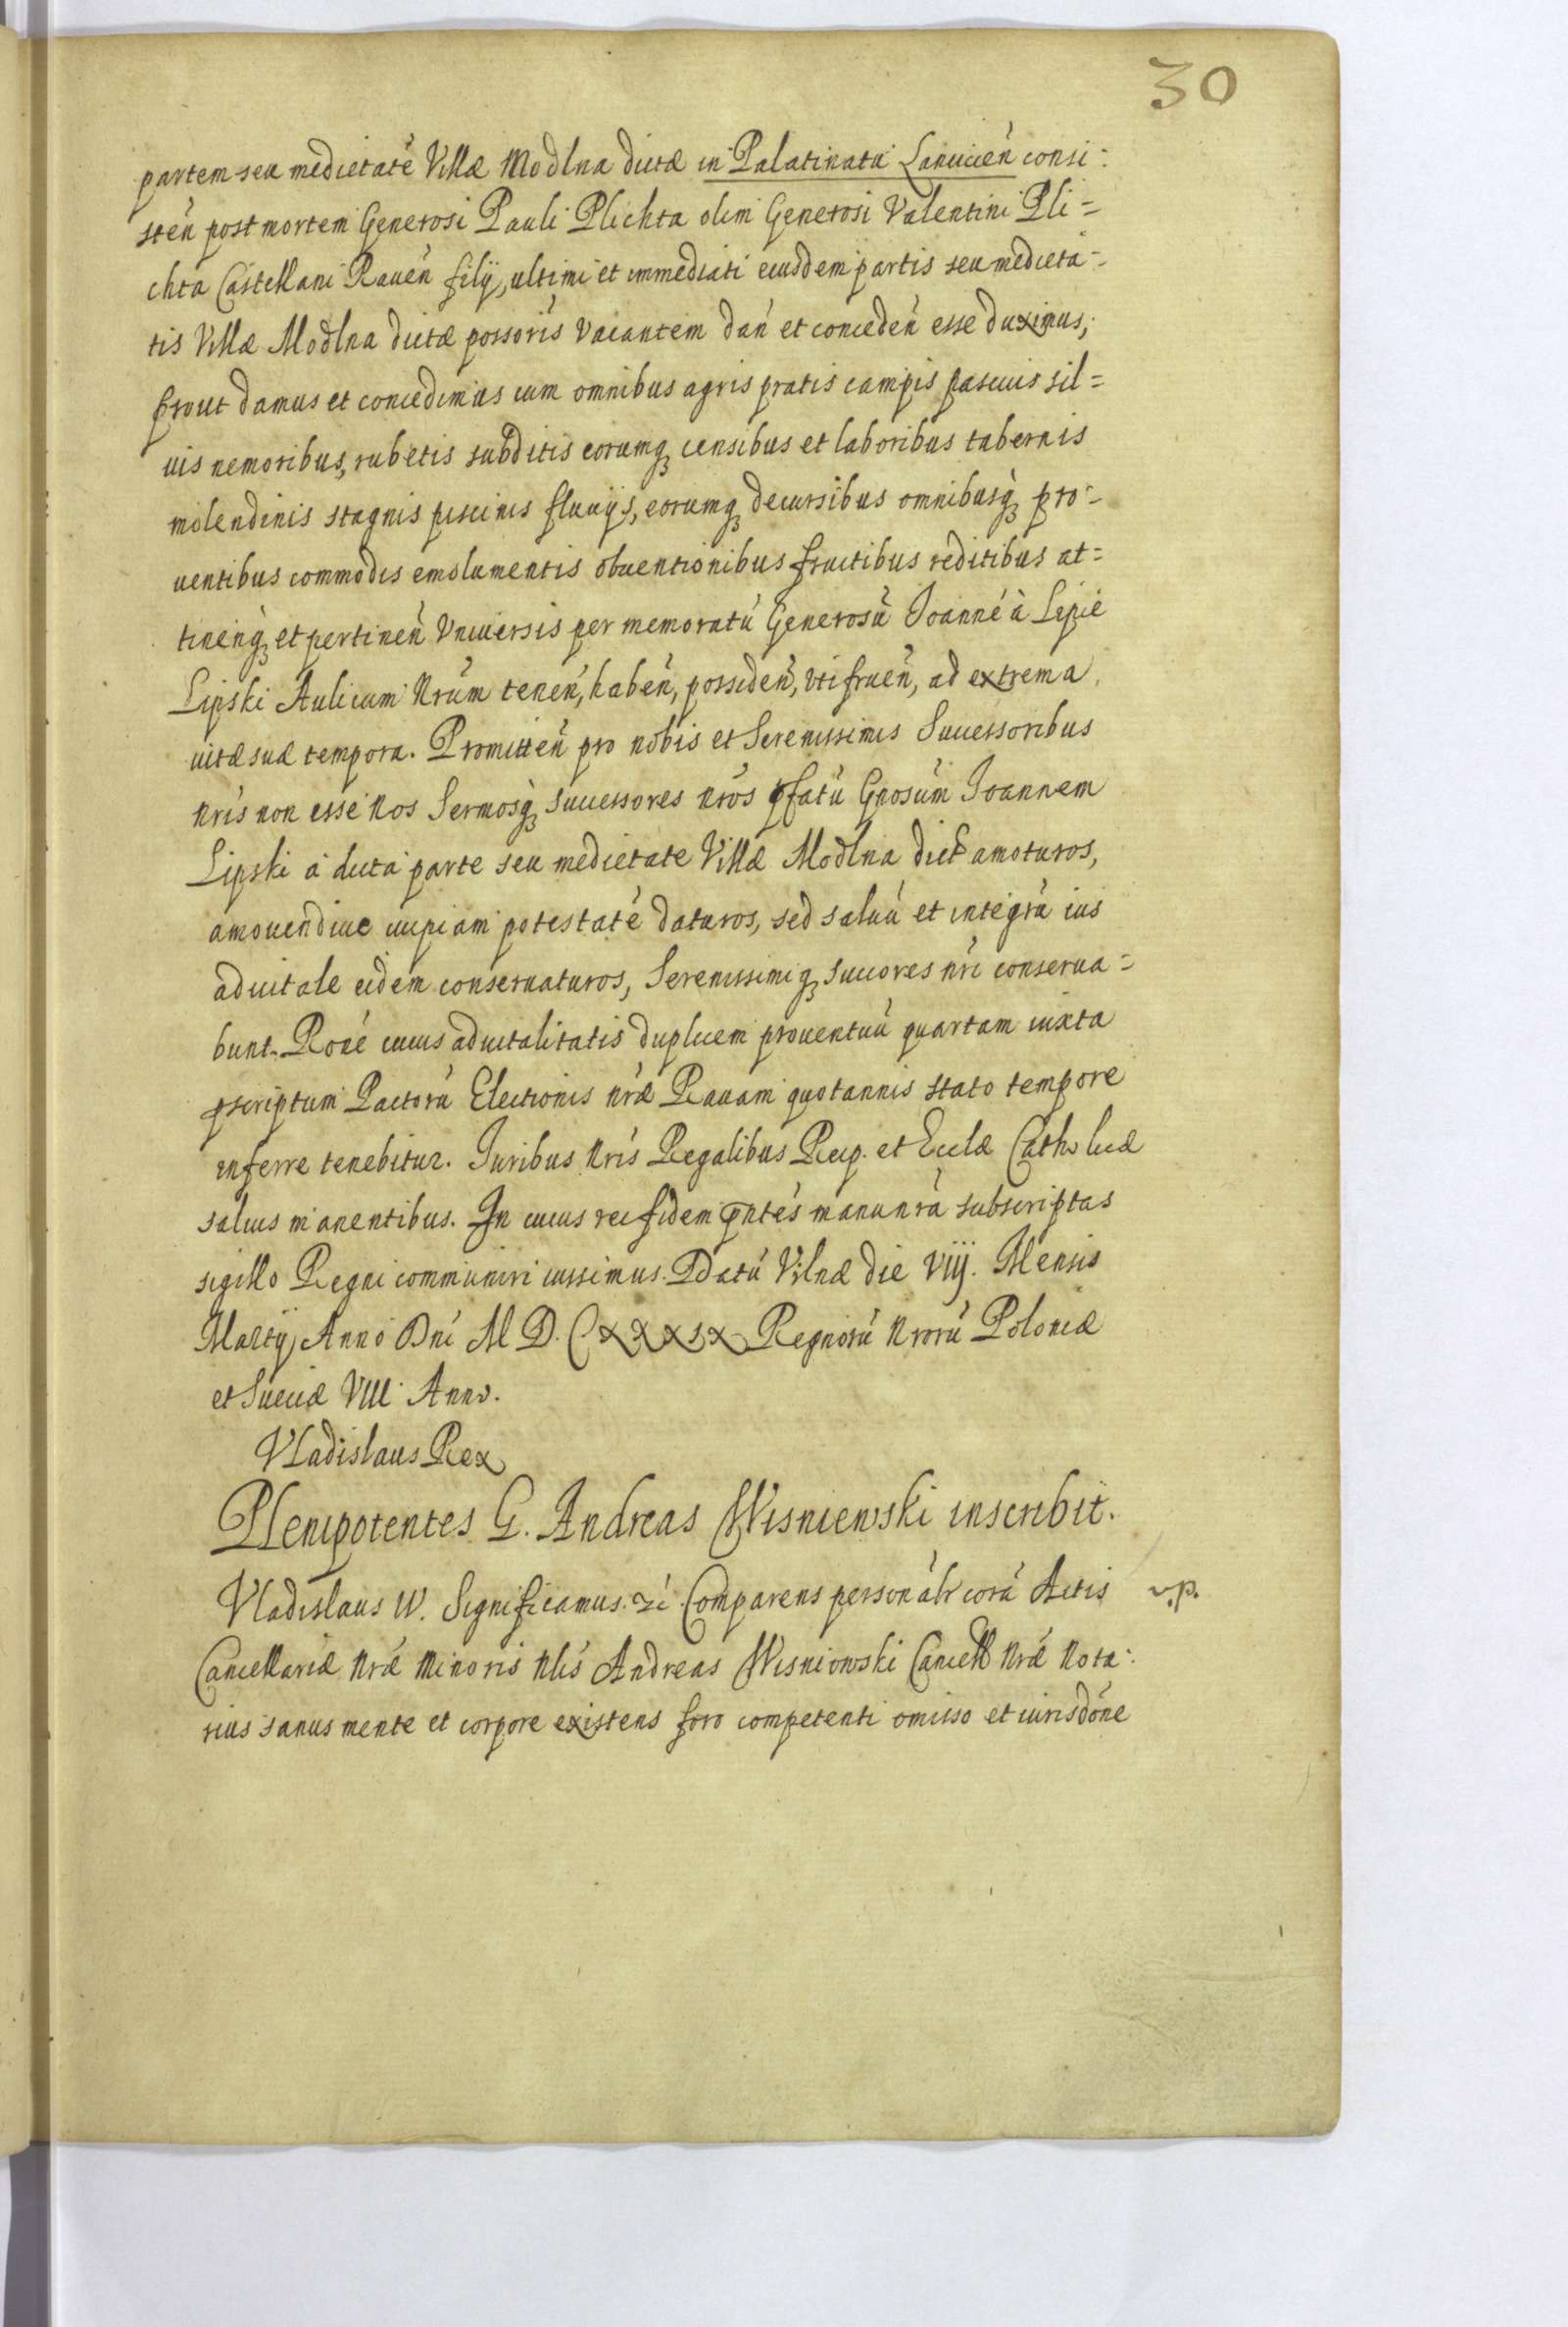 30
partem seu medietatē Villæ Modlna dictæ in Palatinatu Lanicień consi:
steń post mortem Generosi Pauli Plichta olim Generosi Valentini Pli=
chta Castellani Raueń filij, ultimi et immediati eiusdem partis seu medieta=
tis Villæ Modlna dictæ possoris vacantem dań et concedeń esse duximus;
prout damus et concedimus cum omnibus agris pratis campis pascuis sil=
uis nemoribus, rubetis subditis eorumq₃ censibus et laboribus tabernis
molendinis stagnis piscinis fluuijs, eorumq₃ decursibus omnibusq₃ pro=
uentibus commodis emolumentis obuentionibus fructibus reditibus at=
tinenq₃ et pertineń Vniuersis per memoratū Generosū Joannē à Lipie
Lipski Aulicum Nrum teneń, habeń, possideń, vtifrueń, ad extrema
uitæ suæ tempora. Promitteń pro nobis et Serenissimis Successoribus
nris non esse Nos Sermosq₃ Successores nros pfatū Gnosum Joannem
Lipski à dicta parte seu medietate Villæ Modlna dict amoturos,
amouendiue cuipiam potestatē daturos, sed saluū et integrū ius
aduitale eidem conseruaturos, Serenissimiq₃ Succores nri conserua=
bunt. Roné cuius aduitalitatis duplicem prouentuū quartam iuxta
pscriptum Pactorū Electionis nræ Rauam quotannis stato tempore
inferre tenebitur. Juribus Nris Regalibus Reip. et Ecclæ Catholicæ
saluis manentibus. In cuius rei fidem pntes manu nra subscriptas
sigillo Regni communiri iussimus. Datū Vilnæ die VIIJ. Mensis
Martij Anno Dni M D. CXXXIX Regnorū Nrorū Poloniæ
et Sueciæ VIII Anno.
Vladislaus Rex
Plenipotentes G. Andreas Wisniewski inscribit.
Vladislaus IV. Significamus. Comparens personalr corā Actis v.p.
Cancellariæ Nræ Minoris Nlis Andreas Wisniowski Cancell Nræ Nota:
rius sanus mente et corpore existens foro competenti omisso et iurisdōne